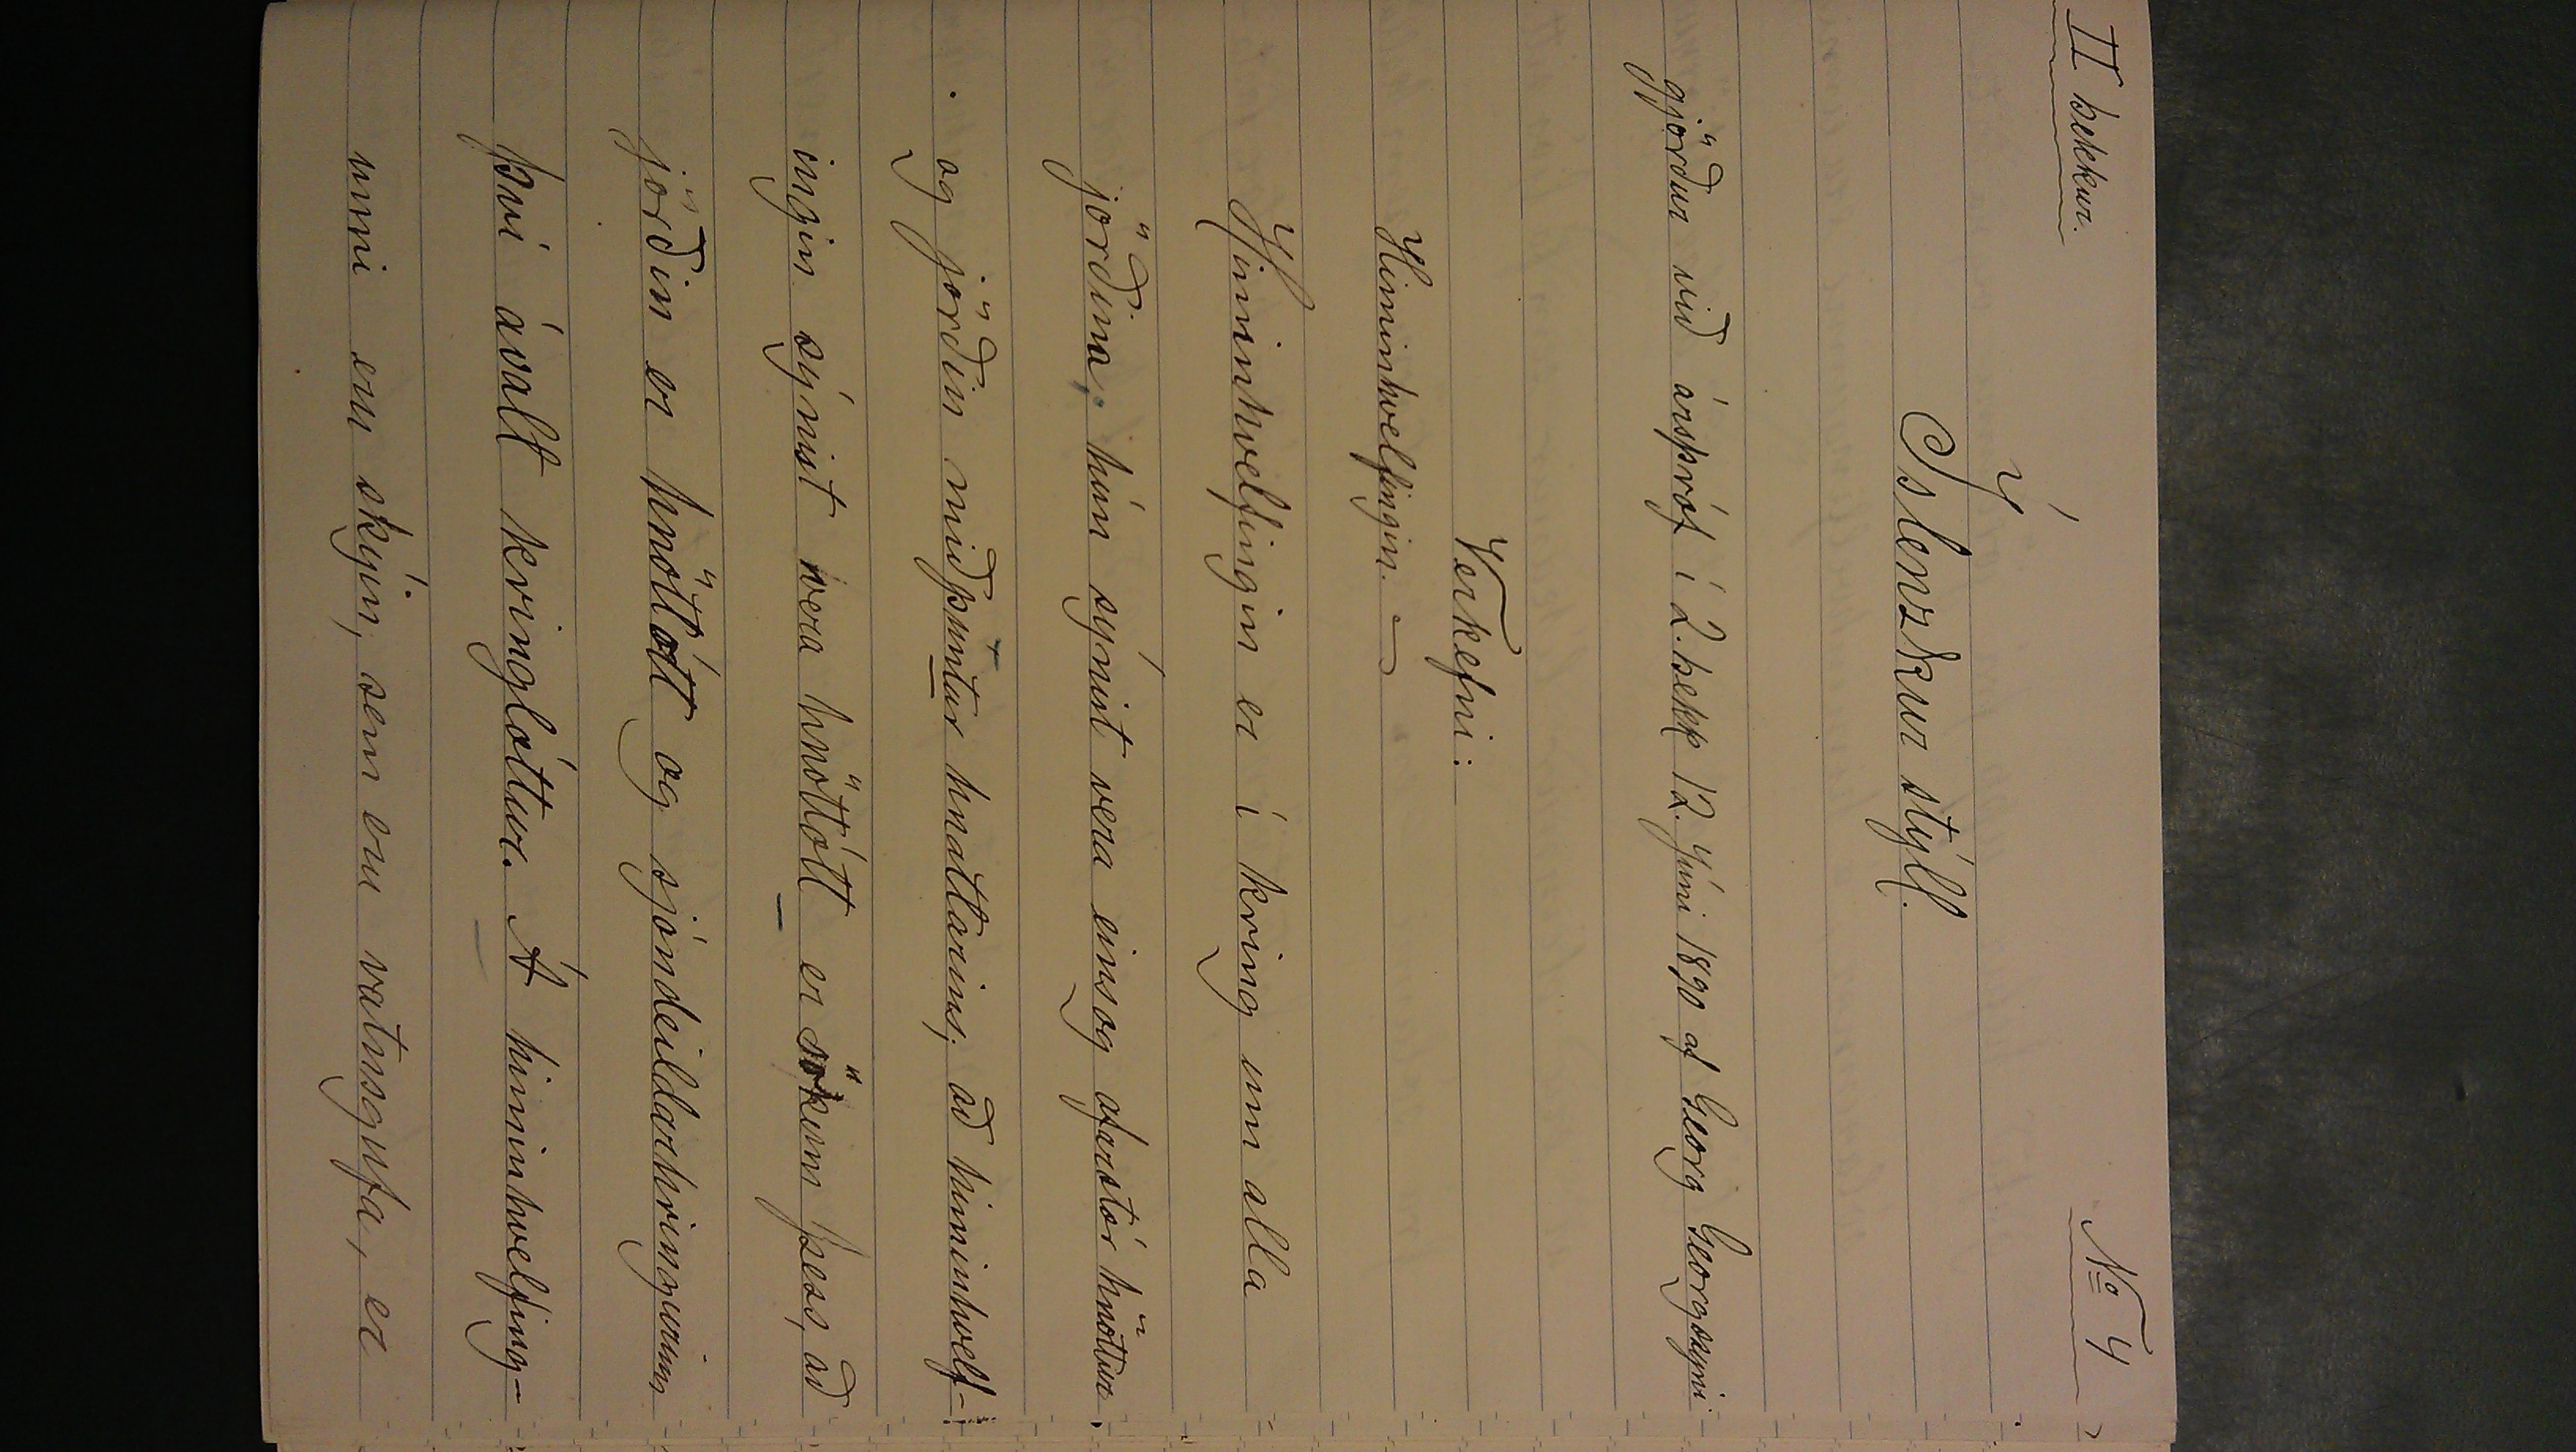 II bekkur.
No 4
Íslenzkur stýll.
gjörður við ársþróf í 2. bekk 12. Júní 1890 af Georg Georgssyni
Verkefni:
Himinhvelfingin. —
Himinhvelfingin er í kring um alla
jörðina, hún sýnist vera einsog afarstór hnöttur
og jörðin miðpuntur hnattarins; að himinhvelf-
ingin sýnist vera hnöttótt er sökum þess, að
jörðin er hnöttótt og sjóndeildarhringurinn
því ávalt kringlóttur. Á himinhvelfing-
unni eru skýin, sem eru vatnsgufa, er